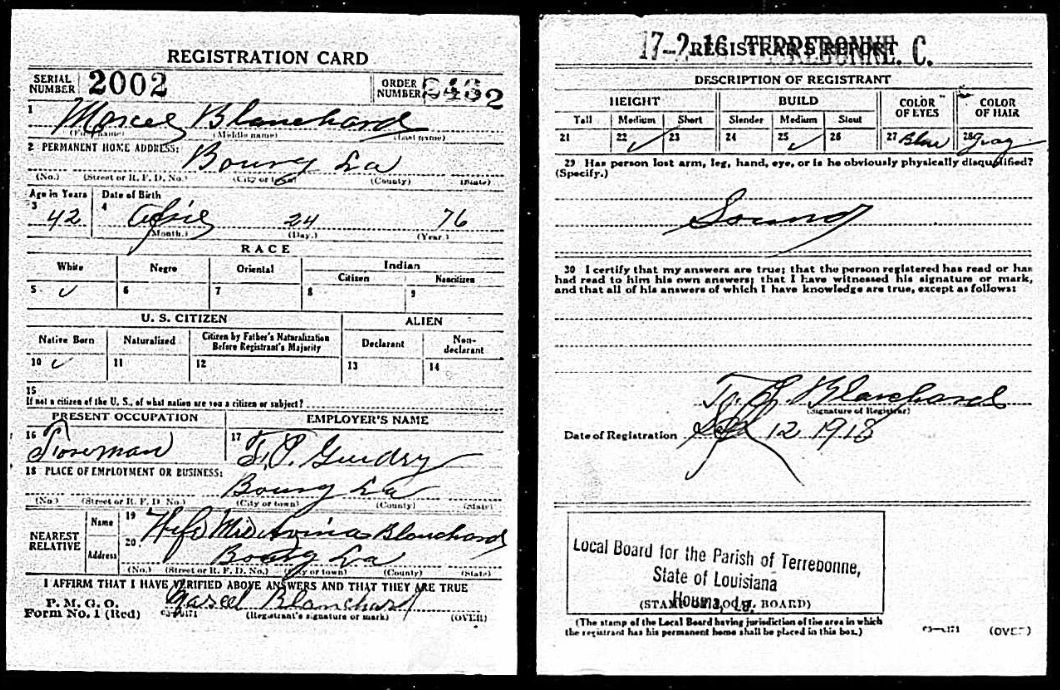 REGISTRATION CARD
SERIAL NUMBER 2002 ORDER NUMBER
1 Marcel Blanchard
(First name) (Middle name) (Last name)
2 PERMANENT HOME ADDRESS:
Bourg La
(No.) (Street or R. F. D. No.) (City or town) (County) (State)
Age in Years Date of Birth
3 42 4 April 24 76
(Month.) (Day.) (Year.)
RACE
White Negro Oriental Indian
Citizen Noncitizen
5 ✓ 6 7 8 9
U. S. CITIZEN ALIEN
Native Born Naturalized Citizen by Father's Naturalization Before Registrant's Majority Declarant Non-declarant
10 ✓ 11 12 13 14
15
If not a citizen of the U. S., of what nation are you a citizen or subject?
PRESENT OCCUPATION EMPLOYER'S NAME
16 Foreman 17 Guidry
18 PLACE OF EMPLOYMENT OR BUSINESS:
Bourg La
(No.) (Street or R. F. D. No.) (City or town) (County) (State)
NEAREST RELATIVE
Name 19 Wife Mrs Blanchard
Address 20 Bourg La
(No.) (Street or R. F. D. No.) (City or town) (County) (State)
I AFFIRM THAT I HAVE VERIFIED ABOVE ANSWERS AND THAT THEY ARE TRUE
P. M. G. O.
Form No. 1 (Red) Marcel Blanchard
(Registrant's signature or mark) (OVER)
17-2-16 TERREBONNE. C.
REGISTRAR'S REPORT
DESCRIPTION OF REGISTRANT
HEIGHT BUILD COLOR OF EYES COLOR OF HAIR
Tall Medium Short Slender Medium Stout
21 22 ✓ 23 24 25 ✓ 26 27 Blue 28 Gray
29 Has person lost arm, leg, hand, eye, or is he obviously physically disqualified?
(Specify.)
Sound
30 I certify that my answers are true; that the person registered has read or has
had read to him his own answers; that I have witnessed his signature or mark,
and that all of his answers of which I have knowledge are true, except as follows:
Blanchard
(Signature of Registrar)
Date of Registration Sep 12 1918
Local Board for the Parish of Terrebonne,
State of Louisiana
Houma, La.
(STAMP OF LOCAL BOARD)
(The stamp of the Local Board having jurisdiction of the area in which
the registrant has his permanent home shall be placed in this box.)
(OVER)